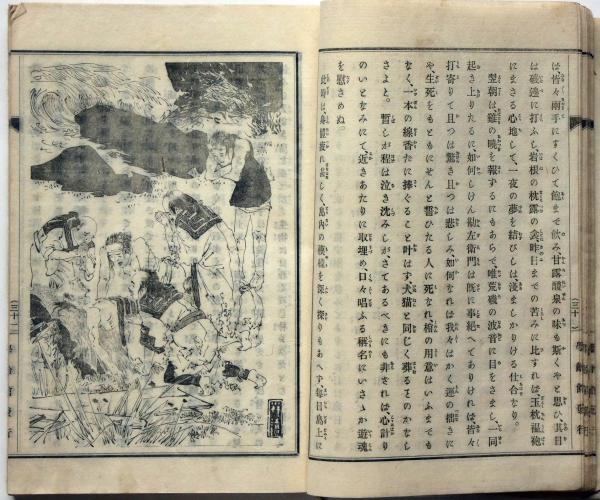 は皆々兩手にすくひて飽まで飲み甘露醴泉の味も斯くやと思ひ、其日
は磯邊に打ふし岩根の枕露の衾昨日までの苦みに比すれば玉枕、褞袍
にまさる心地して、一夜の夢を結びしは淺ましかりける仕合なり。
翌朝は、雞の曉を報ずるにもあらで、唯荒磯の波音に目をさまし、一同
起き上りたるに、如何しけん勘左衛門は既に事絶へてありければ皆々
打寄りて且つは驚き且つは悲しみ、如何なれば我々はかく運の拙きに
や生死をもともにせんと誓ひたる人に死なれ棺の用意はいふまでも
なく、一本の線香だに捧ぐること叶はず犬猫と同じく葬るとのかなし
さよと。暫しが程は泣き沈みしが、さてあるべきにも非ざれば、心計り
のいとなみにて、近きあたりに取埋め日々唱ふる稱名にいさゝか遊魂
を慰さめぬ。
此時は身體疲れ甚しく、島内の模樣を深く探りもあへず、毎日島上に
三十一
三十二